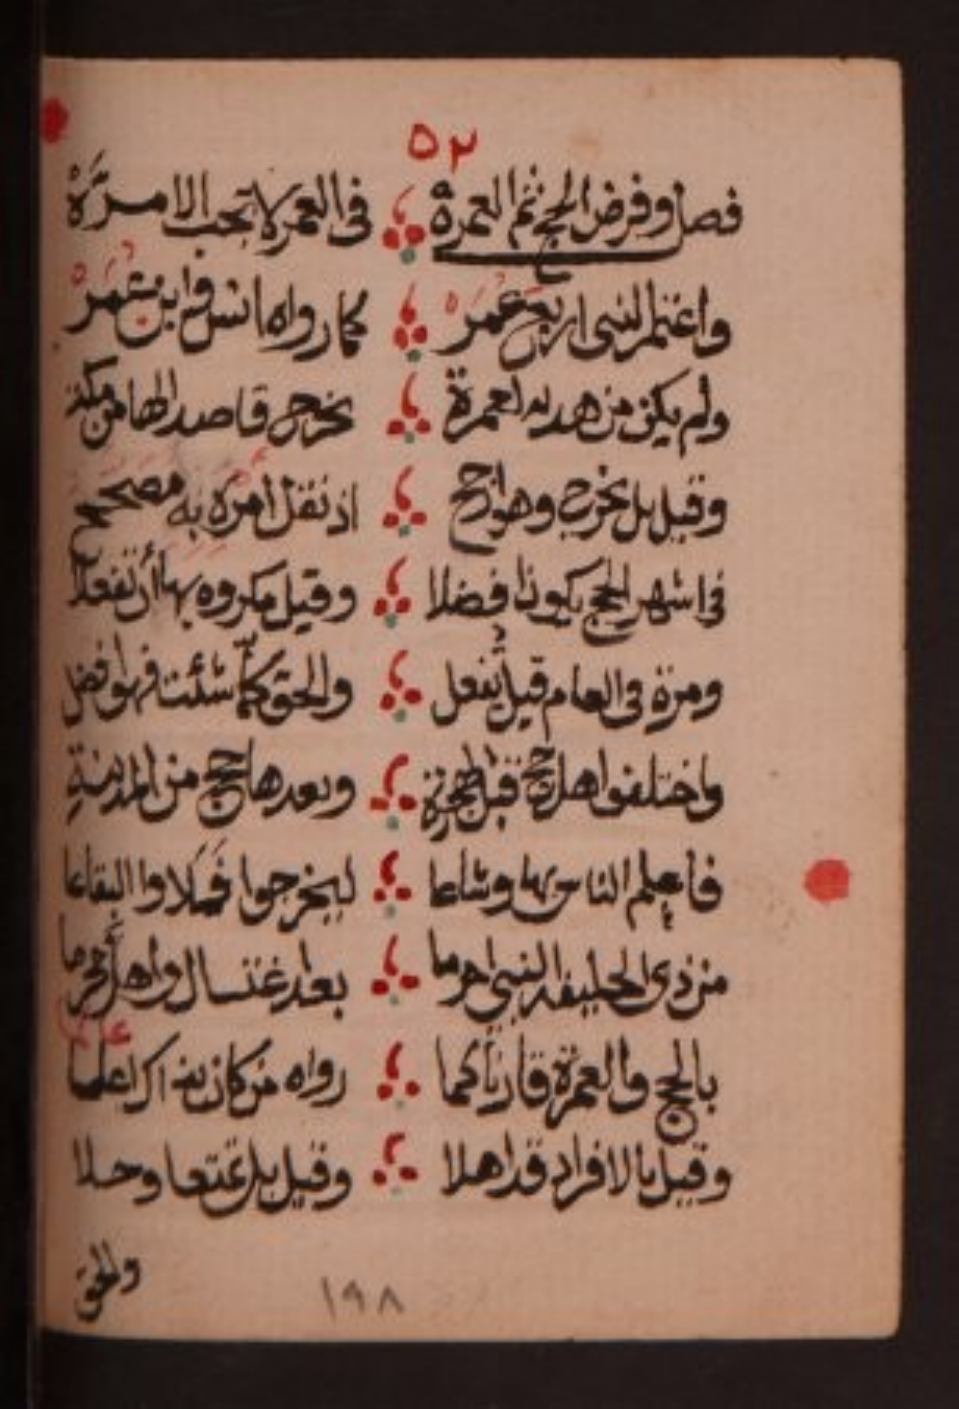 ٥٢
فصل وفرض الحج ثم العمرة في العمر لا تجب الا مرة
واعتمر النبي اربع عمر كما رواه انس وابن عمر
ولم يكن من هديه لعمرة يخرج قاصدا لها من مكة
وقيل بل يخرج وهو ارجح اذ نقل امره به مصحح
في اشهر الحج يكون افضلا وقيل مكروه بها أن تفعلا
ومرة في العام قيل تفعل والحق كلما شئت فهو افضل
واختلفوا هل حج قبل الهجرة وبعدها حج من المدينة
فاعلم الناس بها وشاعا ليخرجوا فملاوا البقاعا
من ذي الحليفة النبي احرما بعد اغتسال واهل محرما
بالحج والعمرة قارنا كما رواه من كان بذاك اعلما
وقيل بالافراد قد اهلا وقيل بل تمتعا وحلا
والحق
١٩٨